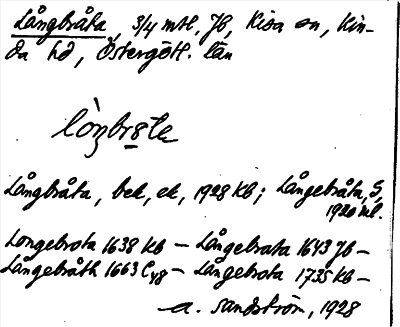 Långbråta, 3/4 mtl, Jb, Kisa sn, Kin-
da hd, Östergötl. län
lòŋbrota
Långbråta, bek, ek, 1928 KB; Långebråta, S,
1920 ml.
Longebrota 1638 KB – Långebrata 1643 Jb –
Långebråth 1663 Cyg – Långebrota 1735 KB –
A. Sandström, 1928